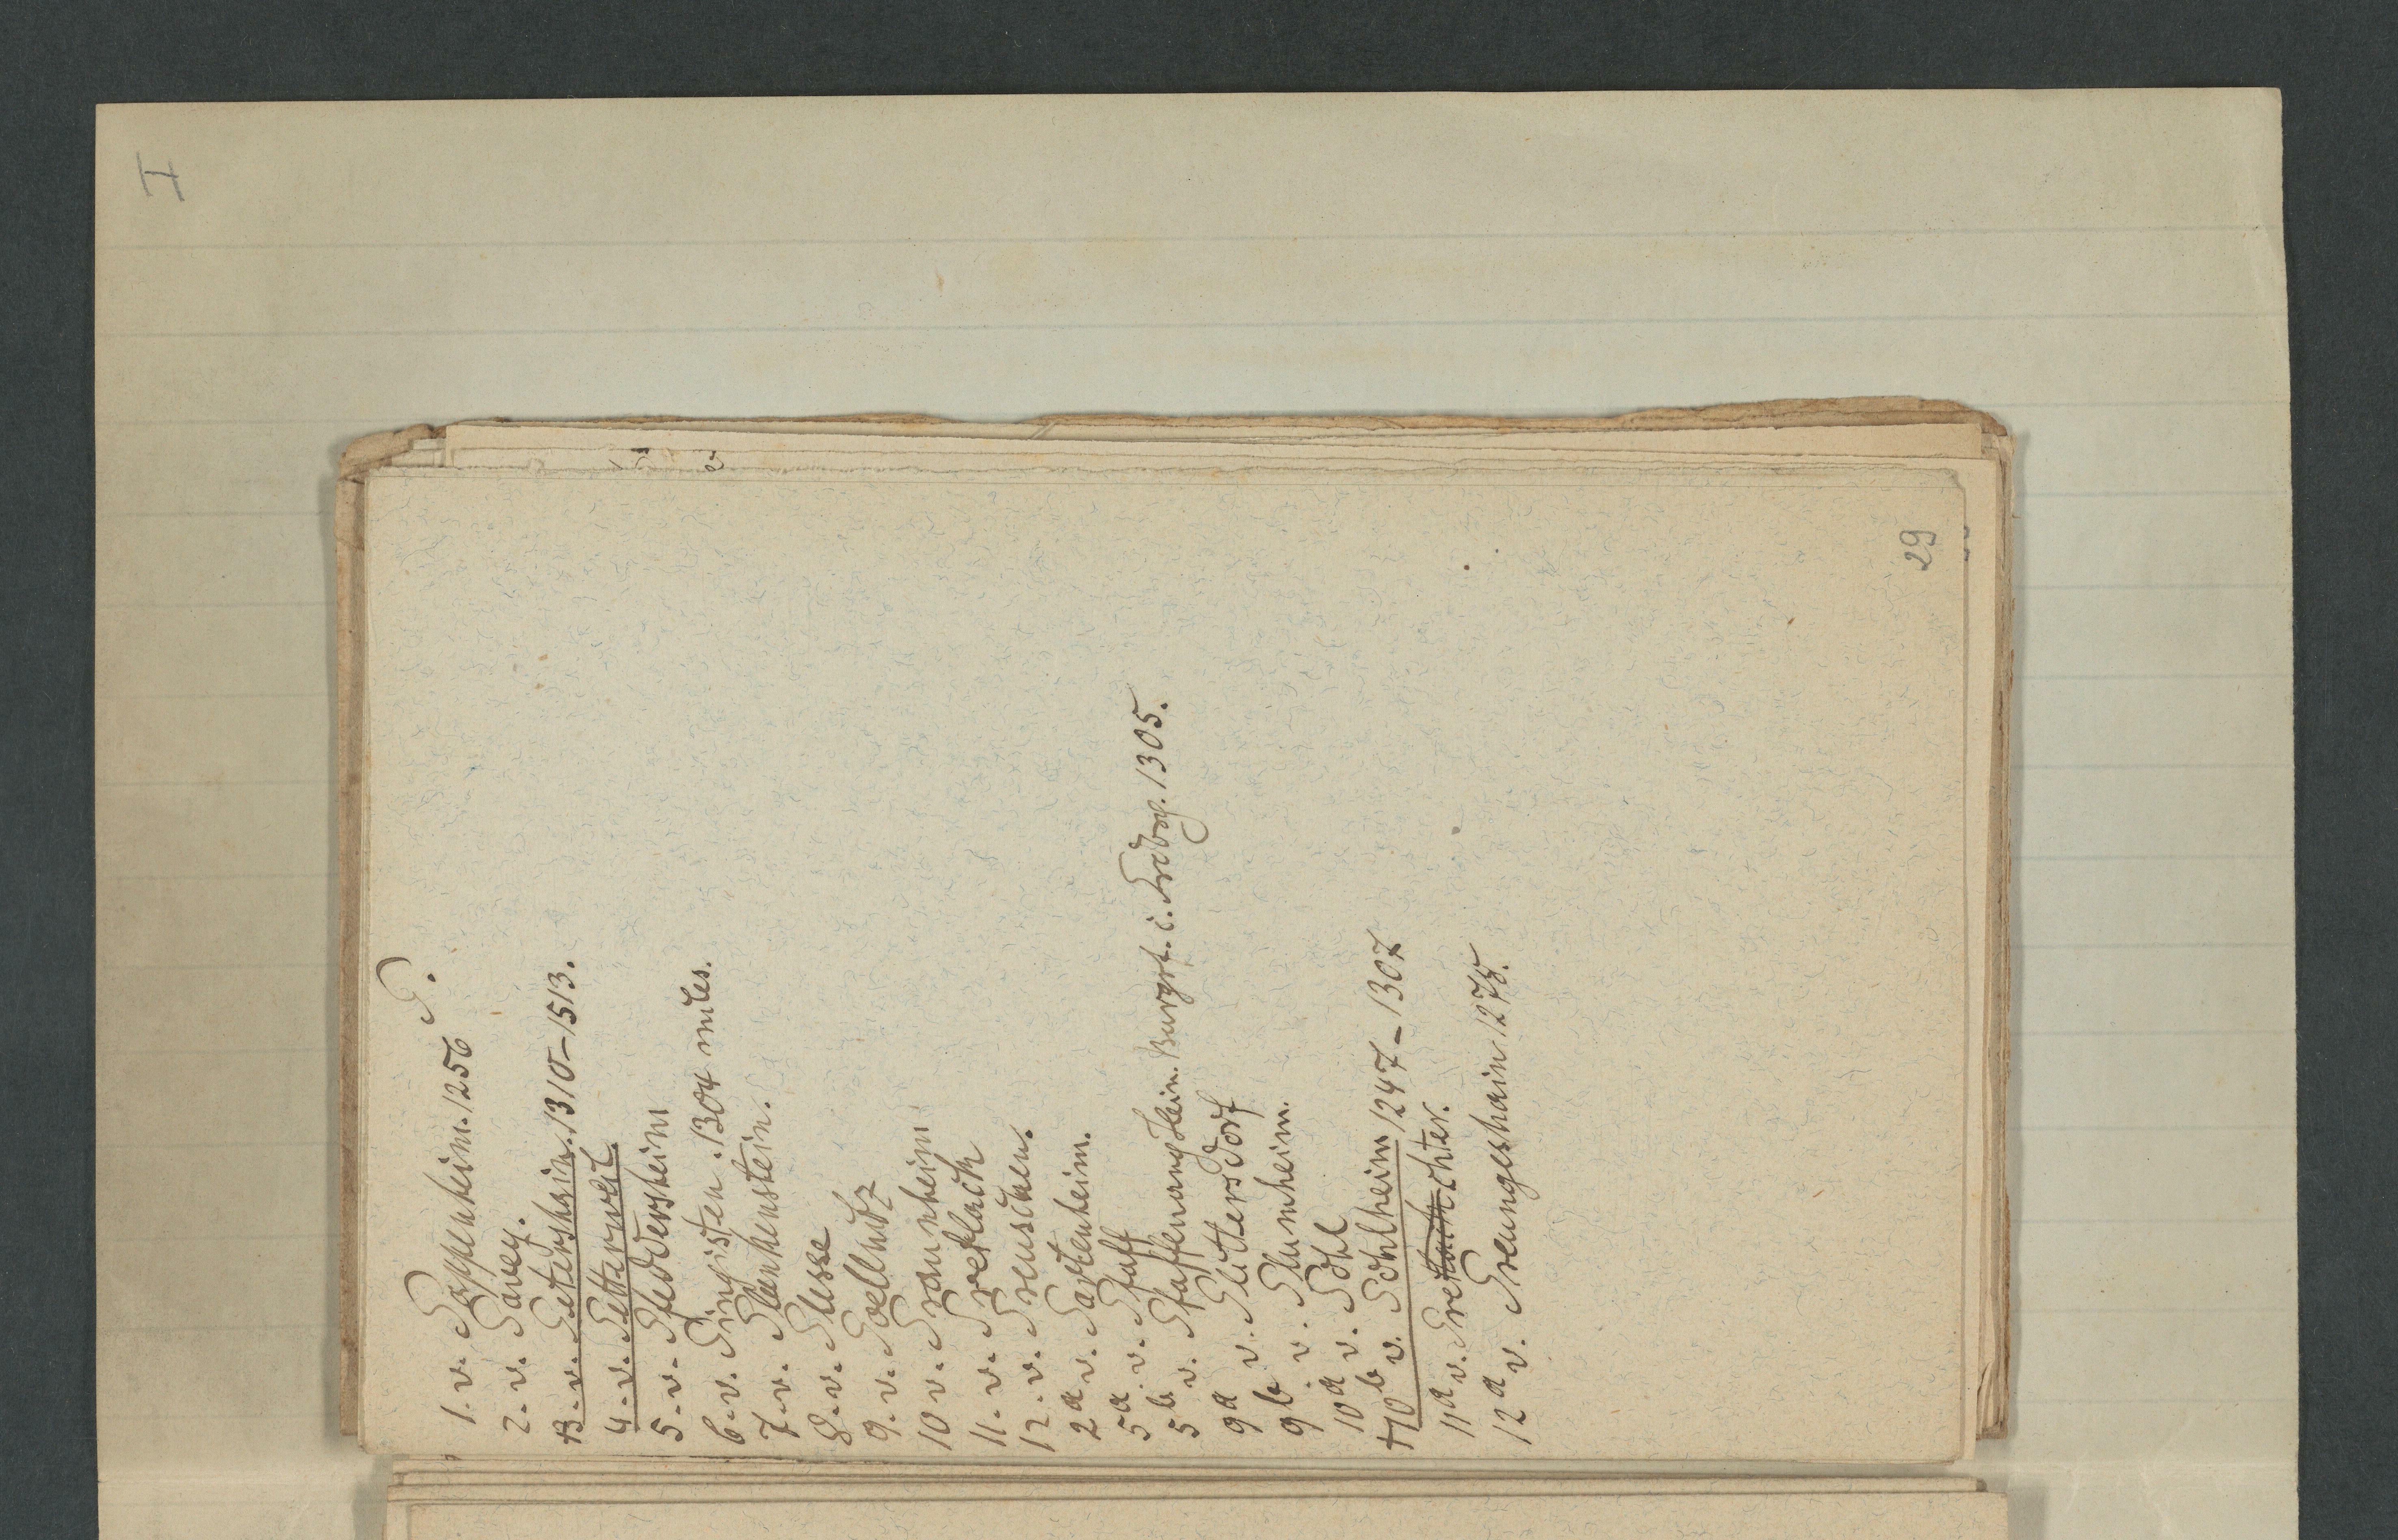 I
P.
1. v. Pappenheim. 1256
2. v. Pavey.
+3. v. Petershain. 1310-1513.
4. v. Petterweil.
5. v. Pfeddersheim
6. v. Pingisten. 1304 miles.
7. v. Plenkenstein.
8. v. Plesse
9. v. Poellnitz
10 v. Praunheim
11. v. Preflach
12. v. Preuschen.
2a v. Partenheim.
5a v. Pfaff
5b v. Pfaffenangstein. Burgrf. i. Frdbg. 1305.
9a v. Plittersdorf
9b v. Plumheim.
10a v. Pohl
+10b v. Pohlheim 1247-1307
11a v. Prechter.
12a v. Preungeshain 1275.
29